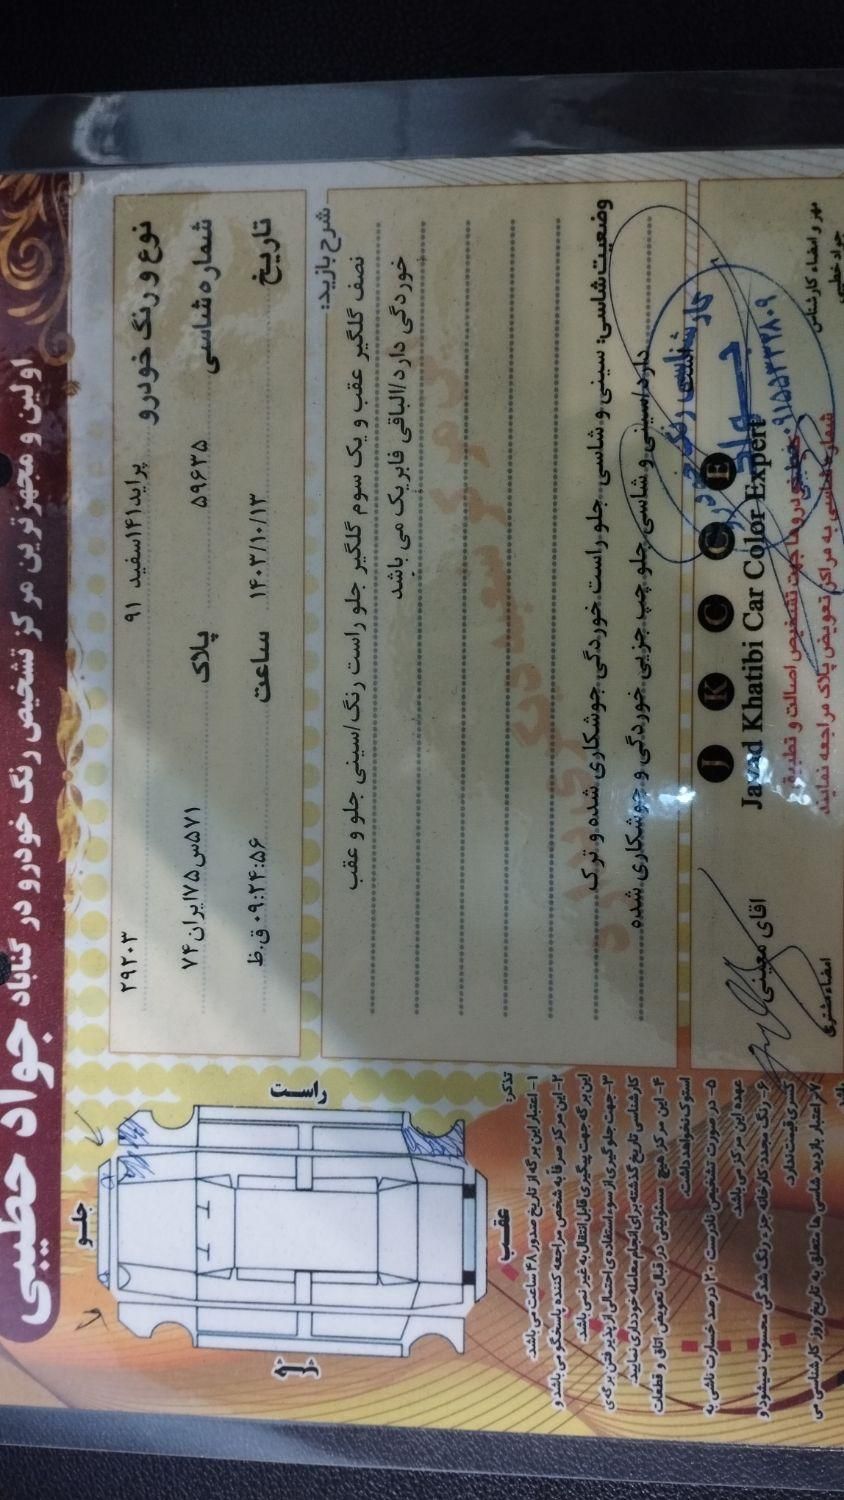 اولین و مجهزترین مرکز تشخیص رنگ خودرو در گناباد جواد خطیبی
نوع و رنگ خودرو پراید ۱۴۱ سفید ۹۱ ۲۹۲۰۳
شماره شاسی ۵۹۶۳۵ پلاک ۵۷۱س۷۵ایران۷۴
تاریخ ۱۴۰۳/۱۰/۱۳ ساعت ۰۹:۲۴:۵۶ ق.ظ
شرح بازدید:
نصف گلگیر عقب و یک سوم گلگیر جلو راست رنگ/سینی جلو و عقب
خوردگی دارد/الباقی فابریک می باشد
وضعیت شاسی: سینی و شاسی جلو راست خوردگی جوشکاری شده و ترک
دارد/سینی و شاسی جلو چپ جزیی خوردگی و جوشکاری شده
است
J K C C E
Javad Khatibi Car Color Expert
مهر و امضاء کارشناس
جواد خطیبی
کارشناسی رنگ خودرو
جواد
۰۹۱۵۵۳۳۲۸۰۹
جهت تشخیص اصالت و تطبیق
شماره شاسی به مراکز تعویض پلاک مراجعه نمایند
اقای معینی
امضاء مشتری
جلو
راست
عقب
تذکر:
۱- اعتبار این برگه از تاریخ صدور ۴۸ ساعت می باشد.
۲- این مرکز صرفا به شخص مراجعه کننده پاسخگو می باشد و
این برگه جهت پیگیری قابل انتقال به غیر نمی باشد.
۳- جهت جلوگیری از سوء استفاده ی احتمالی از پذیرفتن برگه ی
کارشناسی تاریخ گذشته برای انجام معامله خودداری نمایید.
۴- این مرکز هیچ مسئولیتی در قبال تعویض اتاق و قطعات
استوک نخواهد داشت.
۵- در صورت تشخیص نادرست ۲۰ درصد خسارت ناشی به
عهده این مرکز می باشد.
۶- رنگ مجدد کارخانه جزء رنگ شدگی محسوب نمیشود و
کسری قیمت ندارد.
۷- اعتبار بازدید شاسی ها متعلق به تاریخ روز کارشناسی می
باشد